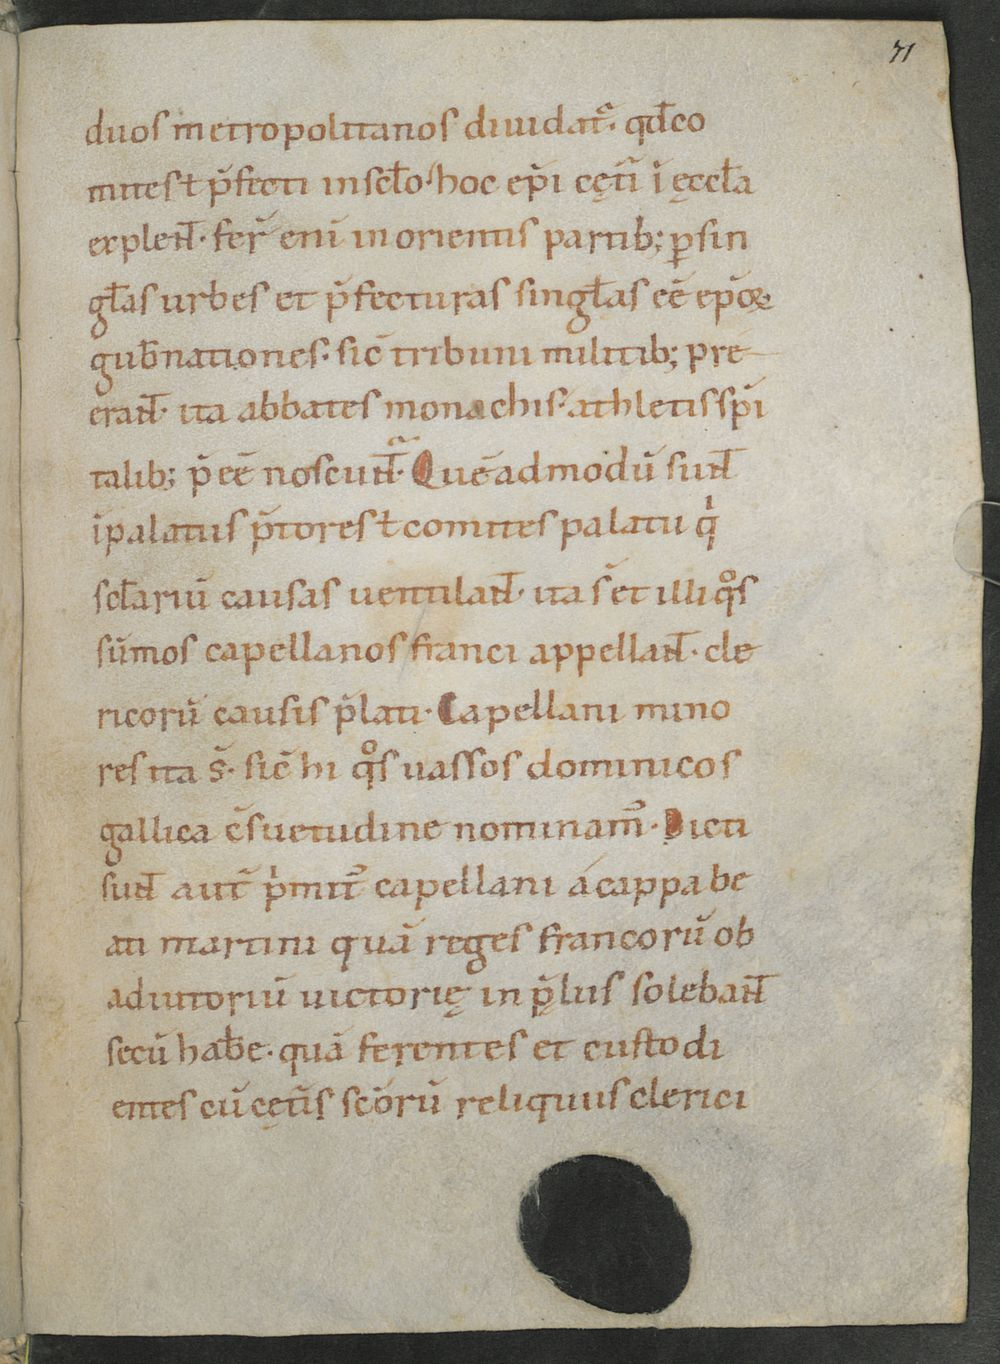 71
duos metropolitanos diuidat᷑· qđ co
mites ł p̄fecti in scło· hoc ep̄i cęt̄i ī ęccła
explen̄t· fer̄t enī in orientis partib; ꝑ sin
głas urbes et p̄fecturas singłas eē ep̄oꝝ·
gub̄nationes· sic̄ tribuni militib; pre
eran̄t· ita abbates monachis· athletis sp̄i
talib; p̄eē noscun̄t᷑· Quēadmodū sun̄t
ī palatiis p̄tores ł comites palatii qⁱ
scłariū causas uentilan̄t· ita s̄ et illi qͦs
sūmos capellanos franci appellan̄t· cle
ricorū causis p̄lati· Capellani mino
res ita s̄· sic̄ hi qͦs uassos dominicos
gallica c̄suetudine nominam᷒· Dicti
sun̄t aut̄ pⁱmit᷒ capellani a cappa be
ati martini quā reges francorū ob
adiutoriū uictorię in p̄ęliis soleban̄t
secū hab̄e· quā ferentes et custodi
entes cū cęt̄is sc̄orū reliquiis clerici